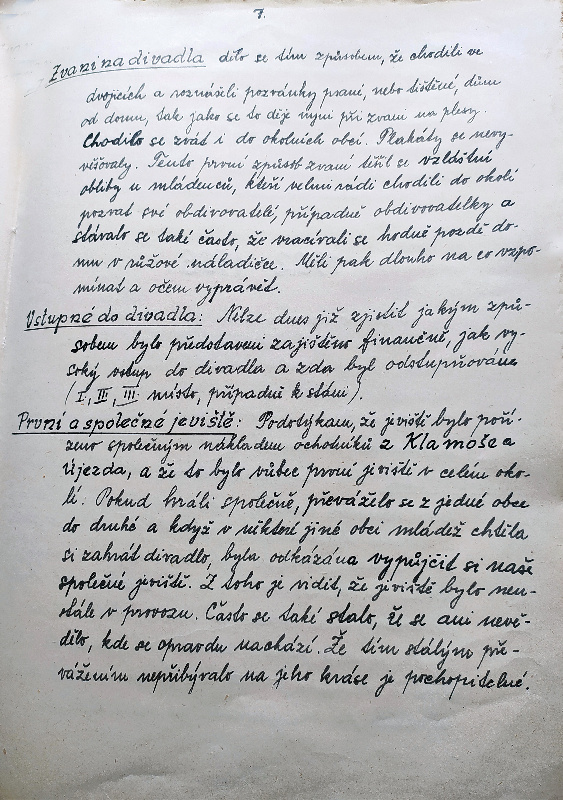 7.
Zvaní na divadla dělo se tím způsobem, že chodili ve
dvojcích a roznášeli pozvánky psané, nebo tištěné, dům
od domu, tak jako se to děje nyní při zvaní na plesy.
Chodilo se zvát i do okolních obcí. Plakáty se nevy-
věšovaly. Tento první způsob zvaní těšil se vzláštní
oblibě u mládenců, kteří velmi rádi chodili do okolí
pozvat své obdivovatelí, případně obdivovatelky a
stávalo se také často, že vracívali se hodně pozdě do-
mu v růžové náladičce. Měli pak dlouho na co vzpo-
mínat a očem vyprávět.
Vstupné do divadla: Nelze dnes již zjistit jakým způ-
sobem bylo představení zajištěno finančně, jak vy-
soký vstup do divadla a zda byl odstupňován
(I, II, III místo, případně k stání).
První a společné jeviště: Podotýkám, že jeviště bylo poří-
zeno společným nákladem ochotníků z Klamoše a
Újezda, a že to bylo vůbec první jeviště v celém oko-
lí. Pokud hráli společně, převáželo se z jedné obce
do druhé a když v některé jiné obci mládež chtěla
si zahrát divadlo, byla odkázána vypůjčit si naše
společné jeviště. Z toho je vidět, že jeviště bylo neu-
stále v provozu. Často se také stalo, že se ani nevě-
dělo, kde se opravdu nachází. Že tím stálým pře-
vážením nepřibývalo na jeho kráse je pochopitelné.